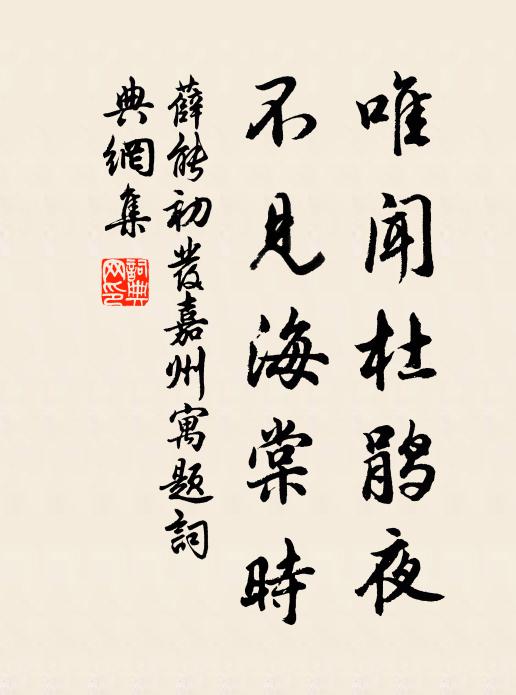 唯闻杜鹃夜
不见海棠時
薛能初發嘉州寓题詞
典網集
詞典网印